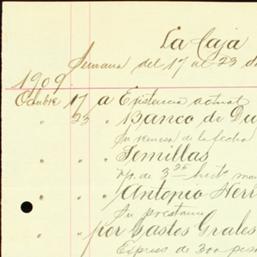 La Caja
Semana del 17 al 23 d
1909.
Octubre 17 a Existencia actual
" 23 " Banco de Du
Su remesa de la fecha
" " " Semillas
" " " Antonio Herr
Su prestamo
" " " por Gastos Grales
Expreso de 300 pes